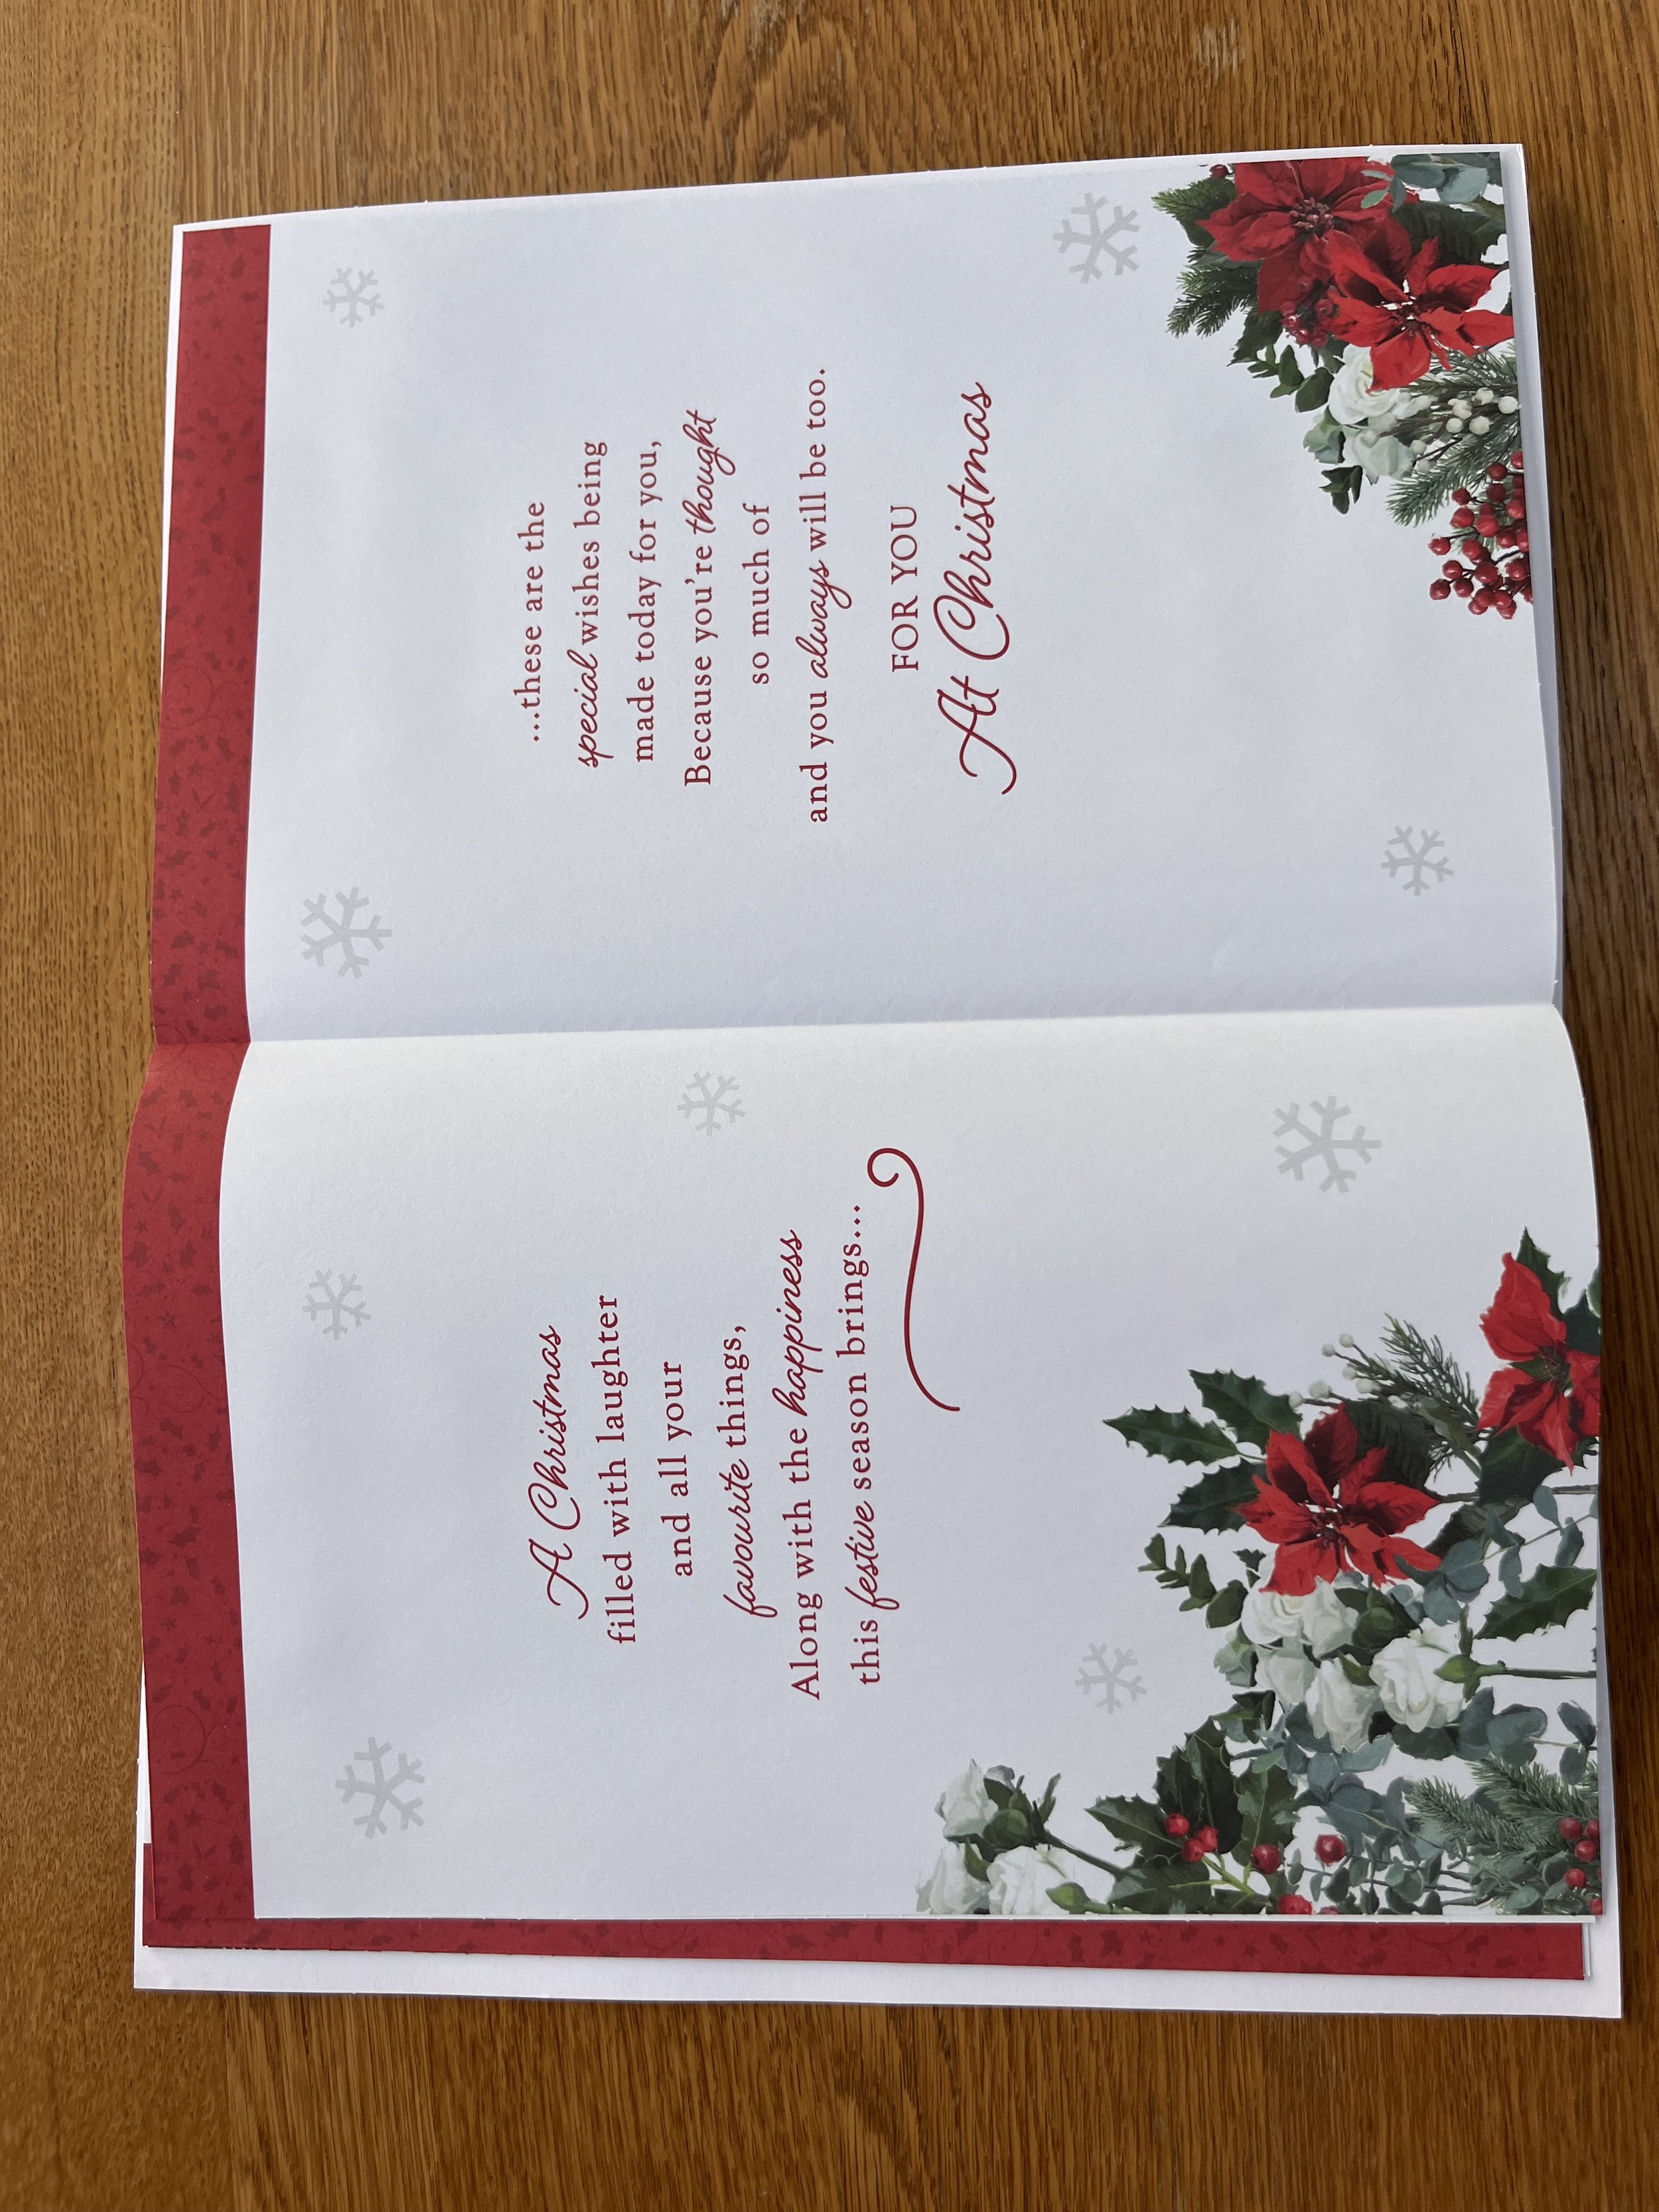 A Christmas
filled with laughter
and all your
favourite things,
Along with the happiness
this festive season brings...
...these are the
special wishes being
made today for you,
Because you're thought
so much of
and you always will be too.
FOR YOU
At Christmas